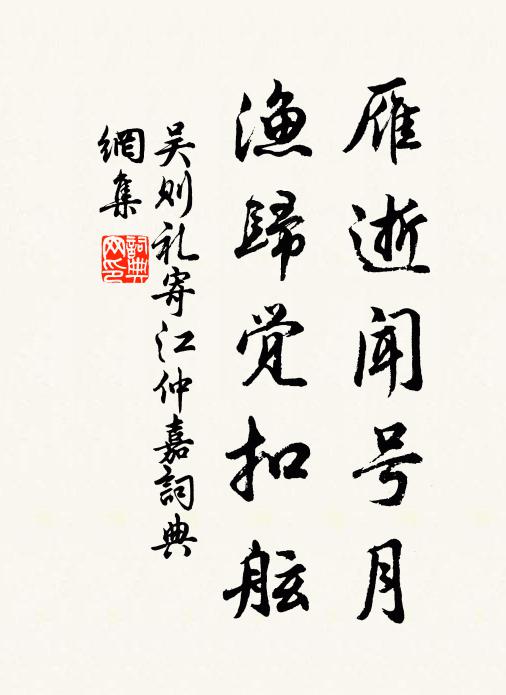 雁逝闻号月
渔歸觉扣舷
吴则礼寄江仲嘉詞典
網集
詞典
网印